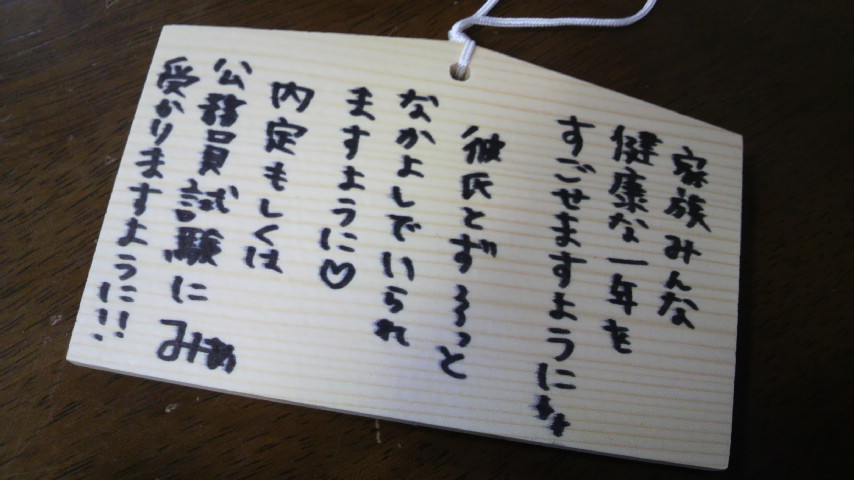 家族みんな
健康な一年を
すごせますように
彼氏とず〜〜っと
なかよしでいられ
ますように♡
内定もしくは
公務員試験に
受かりますように!!
みぁ